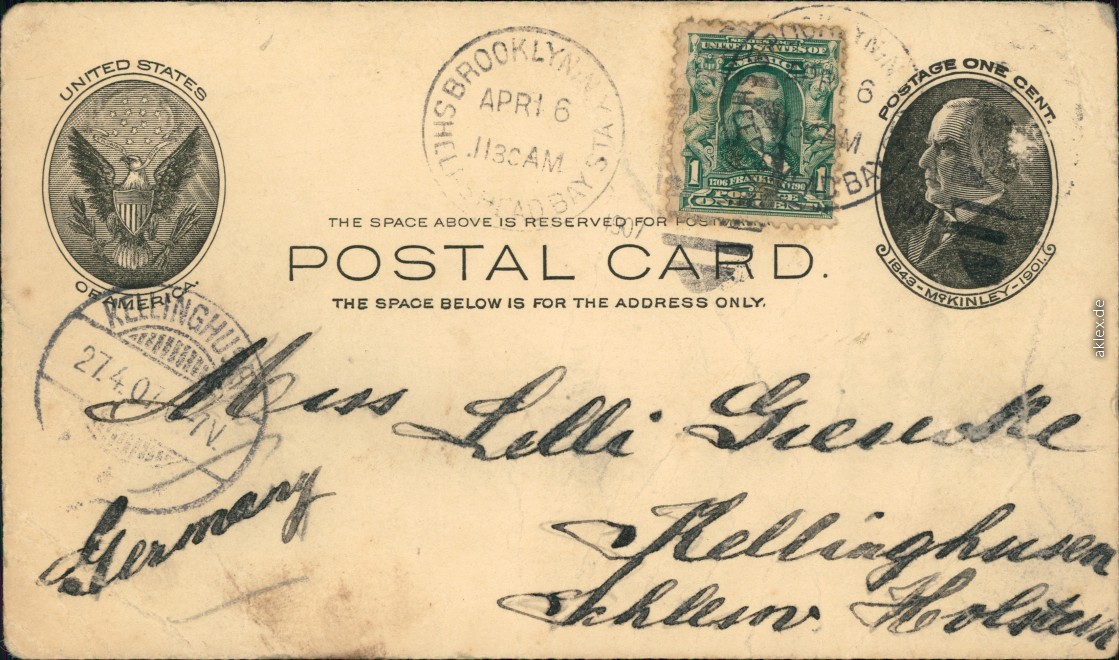 UNITED STATES
OF AMERICA.
BROOKLYN, N.Y.
APR 16
11 30 AM
BAY STA.
1907
SERIES 1902
UNITED STATES OF
AMERICA
1
1706 FRANKLIN 1790
1
POSTAGE
ONE CENT
6
AM
BAY
POSTAGE ONE CENT.
1843-McKINLEY-1901.
THE SPACE ABOVE IS RESERVED FOR
POSTAL CARD.
THE SPACE BELOW IS FOR THE ADDRESS ONLY.
KELLINGHUSEN
27.4.07
7V.
Miss Lelli
Kellinghusen
Schlesw. Holstein
Germany
aklex.de